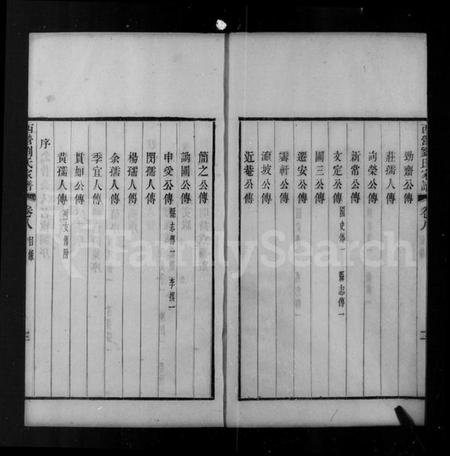 西營劉氏家譜 卷八
二
勁齋公傳
莊孺人傳
尚榮公傳
新常公傳
文定公傳 國史傳一 縣志傳一
圖三公傳
遷安公傳
霽軒公傳
瀛坡公傳
近菴公傳
簡之公傳
訥圃公傳
申受公傳 縣志傳一 李撰一
閔孺人傳
楊孺人傳
余孺人傳
季宜人傳
貫如公傳
黃孺人傳
序
西營劉氏家譜 卷八 目錄
三
FamilySearch